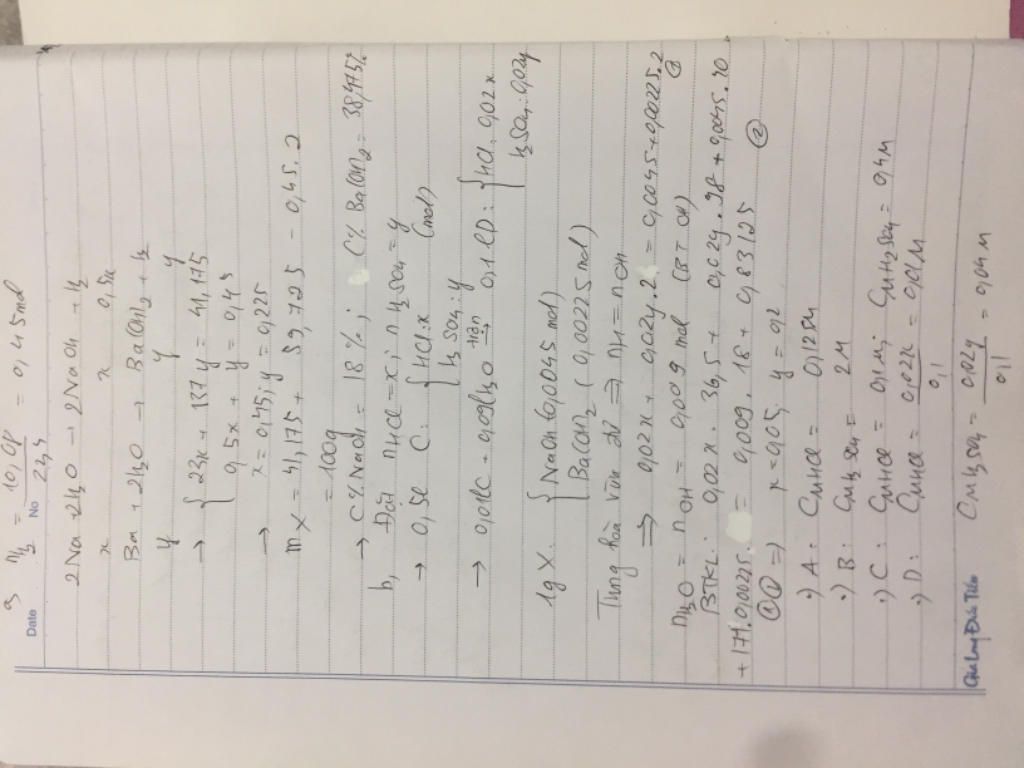 a, nH2 = 10,08 / 22,4 = 0,45 mol
Date No
2Na + 2H2O → 2NaOH + H2
x x 0,5x
Ba + 2H2O → Ba(OH)2 + H2
y y y
→ { 23x + 137y = 41,175
0,5x + y = 0,45
→ x = 0,45; y = 0,225
mX = 41,175 + 59,725 - 0,45.2
= 100g
→ C% NaOH = 18%; C% Ba(OH)2 = 38,475%
b, Đặt nHCl = x; nH2SO4 = y
→ 0,5l C: { HCl: x (mol)
H2SO4: y
→ 0,01lC + 0,09lH2O → 0,1lD: { HCl: 0,02x
H2SO4: 0,02y
1g X: { NaOH (0,0045 mol)
Ba(OH)2 (0,00225 mol)
Trung hoà vừa đủ => nH = nOH
=> 0,02x + 0,02y.2 = 0,0045 + 0,00225.2 ①
nH2O = nOH = 0,009 mol (BT OH)
BTKL: 0,02x.36,5 + 0,02y.98 + 0,0045.40
+ 171.0,00225 = 0,009.18 + 0,83125 ②
①② => x = 0,05, y = 0,2
•) A: CMHCl = 0,125M
•) B: CMH2SO4 = 2M
•) C: CMHCl = 0,1M; CMH2SO4 = 0,4M
•) D: CMHCl = 0,02x / 0,1 = 0,01M
CMH2SO4 = 0,02y / 0,1 = 0,04M